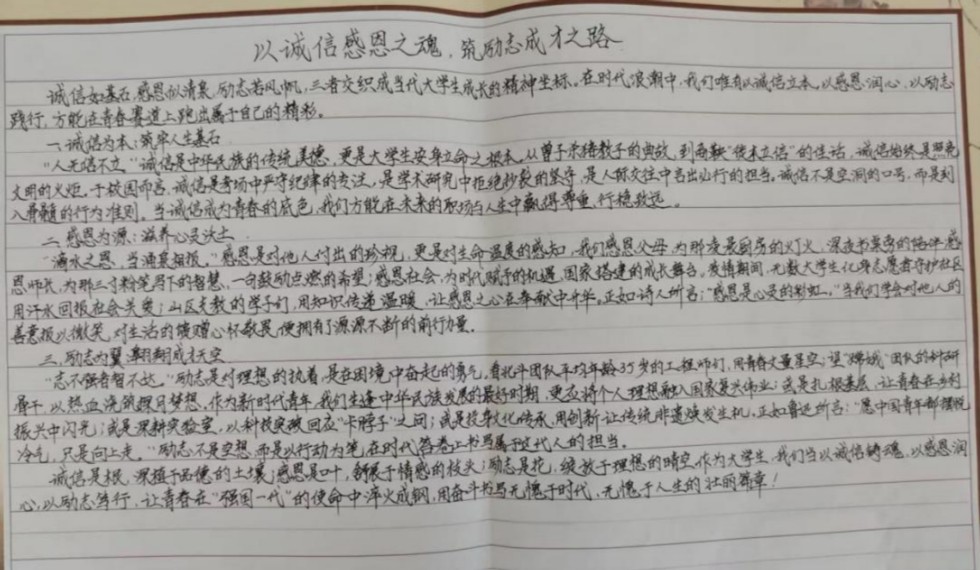 以诚信感恩之魂，筑励志成才之路
诚信如基石，感恩似清泉，励志若风帆，三者交织成当代大学生成长的精神坐标。在时代浪潮中，我们唯有以诚信立本，以感恩润心，以励志
践行，方能在青春赛道上跑出属于自己的精彩。
一、诚信为本：筑牢人生基石
“人无信不立”诚信是中华民族的传统美德，更是大学生安身立命之根本。从曾子杀猪教子的典故，到商鞅“徙木立信”的佳话，诚信始终是照亮
文明的火炬。于校园而言，诚信是考场中严守纪律的专注，是学术研究中拒绝抄袭的坚守，是人际交往中言出必行的担当。诚信不是空洞的口号，而是刻
入骨髓的行为准则。当诚信成为青春的底色，我们方能在未来的职场与人生中赢得尊重，行稳致远。
二、感恩为源：滋养心灵沃土
“滴水之恩，当涌泉相报。”感恩是对他人付出的珍视，更是对生命温度的感知，我们感恩父母，为那凌晨厨房的灯火，深夜书桌旁的陪伴，感
恩师长，为那三寸粉笔写下的智慧，一句鼓励点燃的希望；感恩社会，为时代赋予的机遇，国家搭建的成长舞台。疫情期间，无数大学生化身志愿者守护社区
用汗水回报社会关爱；山区支教的学子们，用知识传递温暖，让感恩之心在奉献中升华。正如诗人所言：“感恩是心灵的彩虹。”当我们学会对他人的
善意报以微笑，对生活的馈赠心怀敬畏，便拥有了源源不断的前行力量。
三、励志为翼：翱翔成才天空
“志不强者智不达。”励志是对理想的执着，是在困境中奋起的勇气，看北斗团队平均年龄35岁的工程师们，用青春丈量星空；望“嫦娥”团队的科研
骨干，以热血浇筑探月梦想。作为新时代青年，我们生逢中华民族发展的最好时期，更应将个人理想融入国家复兴伟业：或是扎根基层，让青春在乡村
振兴中闪光；或是深耕实验室，以科技突破回应“卡脖子”之问；或是投身文化传承，用创新让传统非遗焕发生机。正如鲁迅所言：“愿中国青年都摆脱
冷气，只是向上走。”励志不是空想，而是以行动为笔，在时代答卷上书写属于这代人的担当。
诚信是根，深植于品德的土壤；感恩是叶，舒展于情感的枝头；励志是花，绽放于理想的晴空。作为大学生，我们当以诚信铸魂，以感恩润
心，以励志笃行，让青春在“强国一代”的使命中淬火成钢，用奋斗书写无愧于时代、无愧于人生的壮丽篇章！